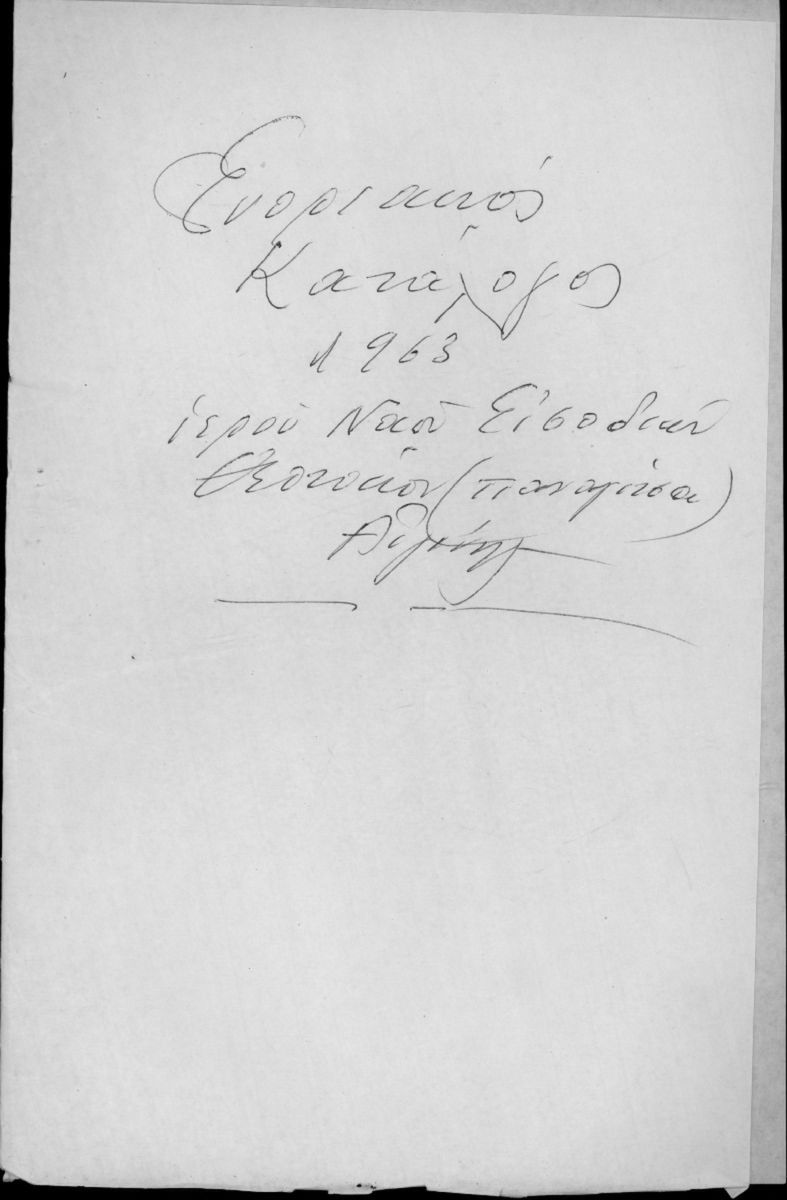 Ενοριακός
Κατάλογος
1963
ἱεροῦ Ναοῦ Εἰσοδίων
Θεοτόκου (Παναγίτσα)
Αἰγίνης